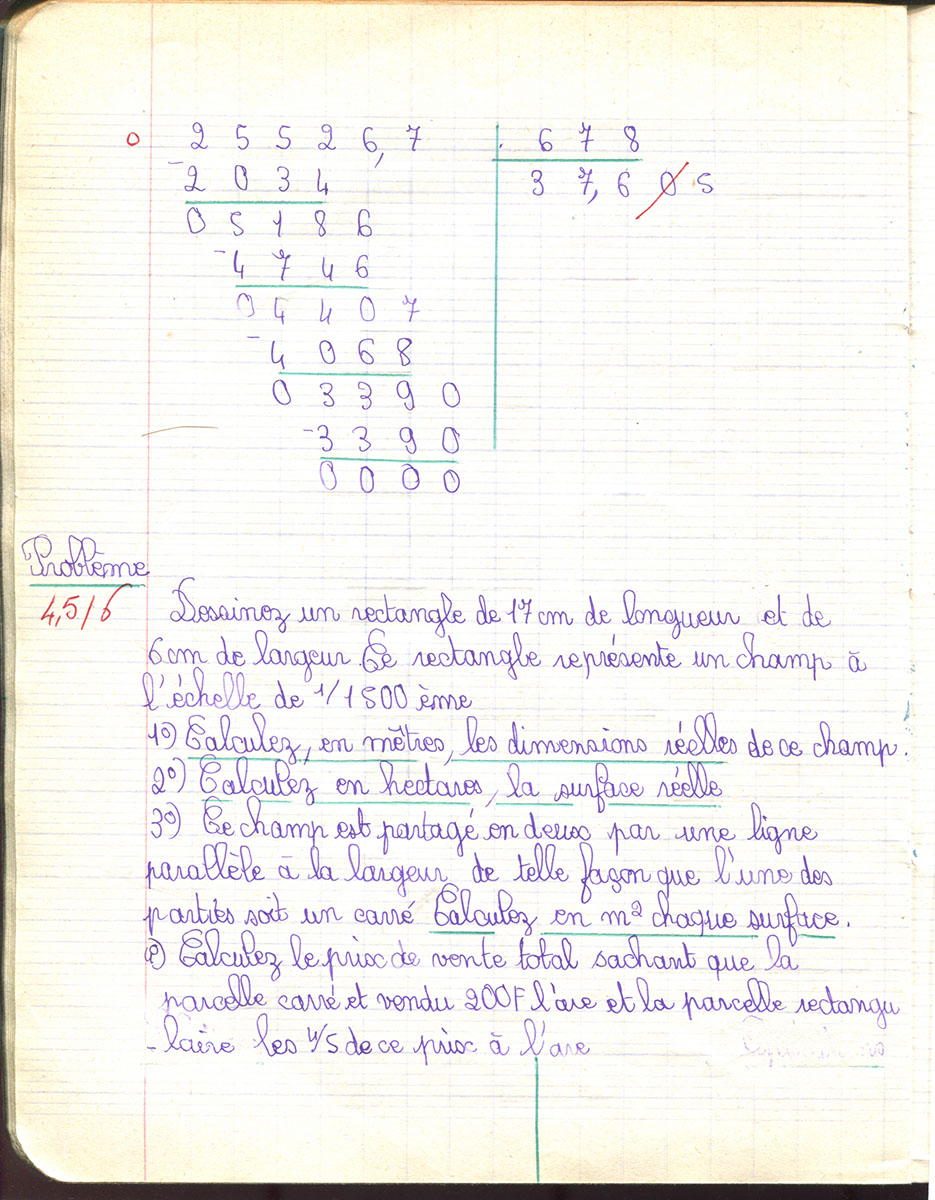 0 2 5 5 2 6,7 6 7 8
- 2 0 3 4 3 7,6 0 5
0 5 1 8 6
- 4 7 4 6
0 4 4 0 7
- 4 0 6 8
0 3 3 9 0
- 3 3 9 0
0 0 0 0
Problème
4,5/6
Dessinez un rectangle de 17 cm de longueur et de
6 cm de largeur. Ce rectangle représente un champ à
l'échelle de 1/1500 ème
1°) Calculez, en mètres, les dimensions réelles de ce champ.
2°) Calculez en hectares, la surface réelle
3°) Ce champ est partagé en deux par une ligne
parallèle à la largeur de telle façon que l'une des
parties soit un carré Calculez en m² chaque surface.
) Calculez le prix de vente total sachant que la
parcelle carré et vendu 200F l'are et la parcelle rectangu
- laire les 4/5 de ce prix à l'are